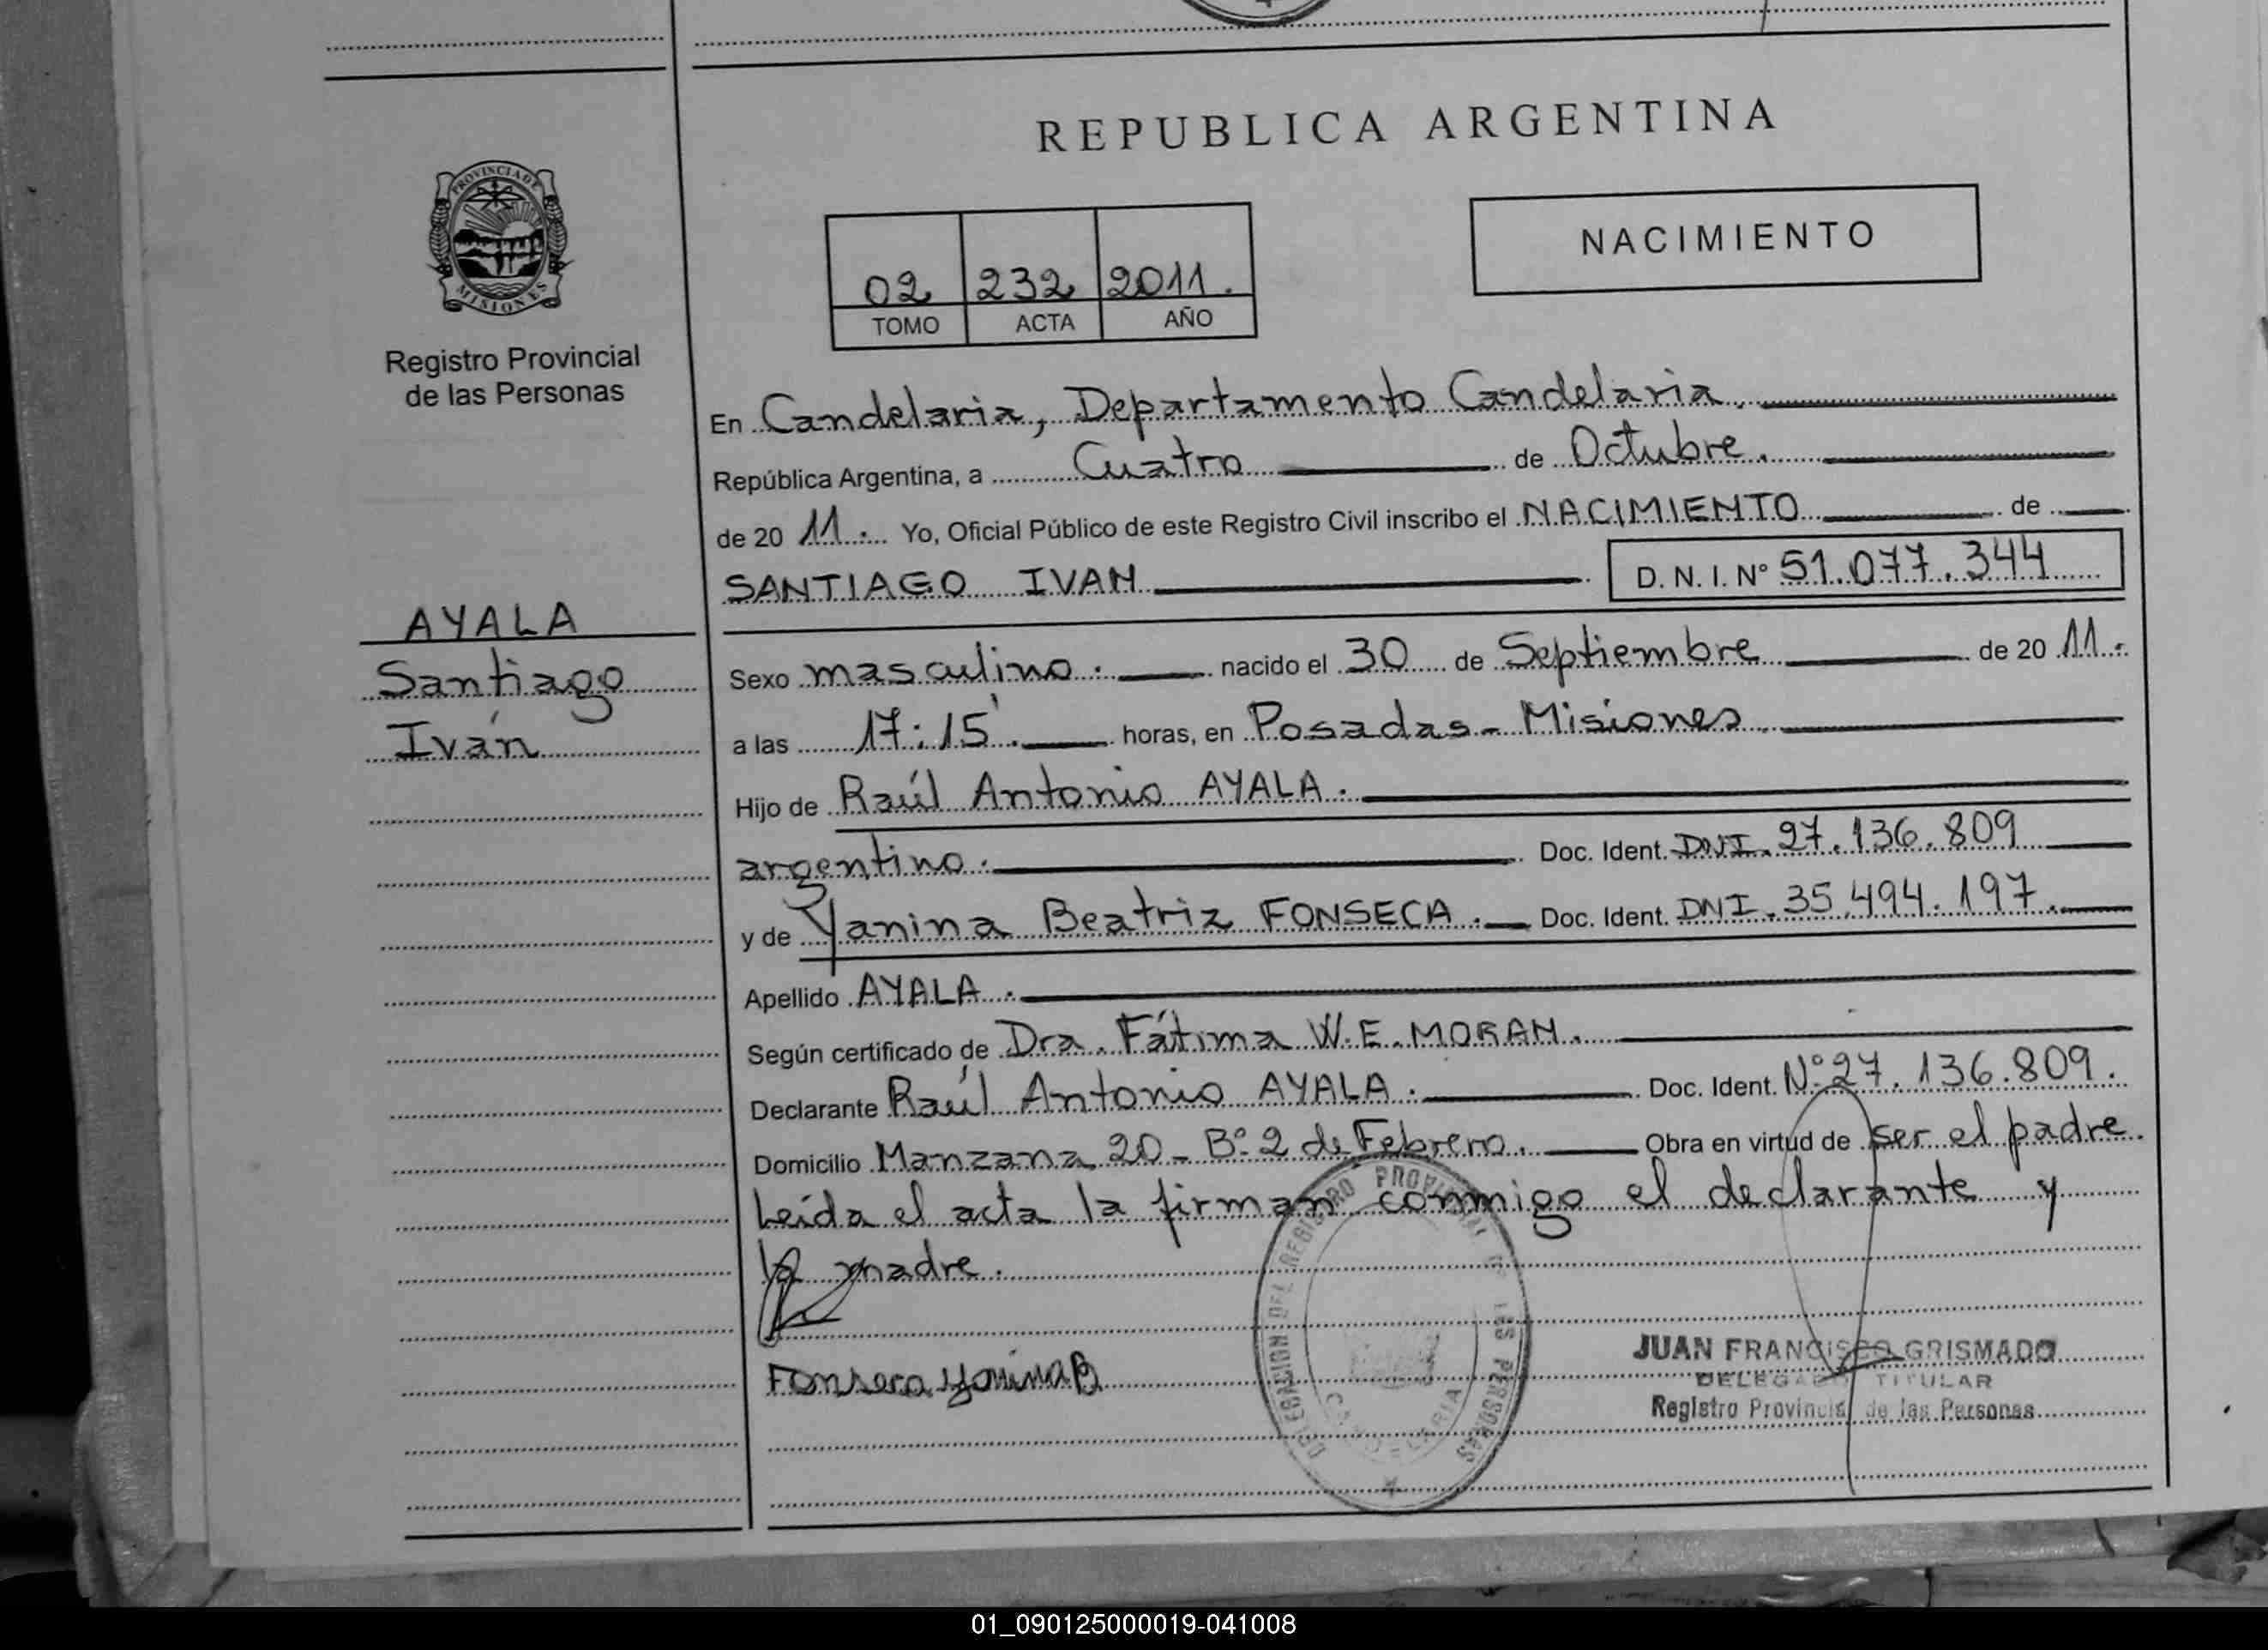 REPUBLICA ARGENTINA
PROVINCIA DE
MISIONES
Registro Provincial
de las Personas
NACIMIENTO
02 232 2011.
TOMO ACTA AÑO
En Candelaria, Departamento Candelaria.
República Argentina, a Cuatro de Octubre.
de 20 11. Yo, Oficial Público de este Registro Civil inscribo el NACIMIENTO de
SANTIAGO IVAN D. N. I. Nº 51.077.344
AYALA
Santiago
Iván
Sexo masculino. nacido el 30 de Septiembre de 20 11.
a las 17:15'. horas, en Posadas - Misiones.
Hijo de Raúl Antonio AYALA.
argentino. Doc. Ident. DNI. 27.136.809
y de Yanina Beatriz FONSECA. Doc. Ident. DNI. 35.494.197.
Apellido AYALA.
Según certificado de Dra. Fátima W.E. MORAN.
Declarante Raúl Antonio AYALA. Doc. Ident. Nº 27.136.809.
Domicilio Manzana 20 - Bº 2 de Febrero. Obra en virtud de ser el padre.
Leída el acta la firman conmigo el declarante y
la madre.
Fonseca Yanina B
DELEGACION DEL REGISTRO PROVINCIAL DE LAS PERSONAS
CANDELARIA
JUAN FRANCISCO GRISMADO
DELEGADO TITULAR
Registro Provincial de las Personas
01_090125000019-041008